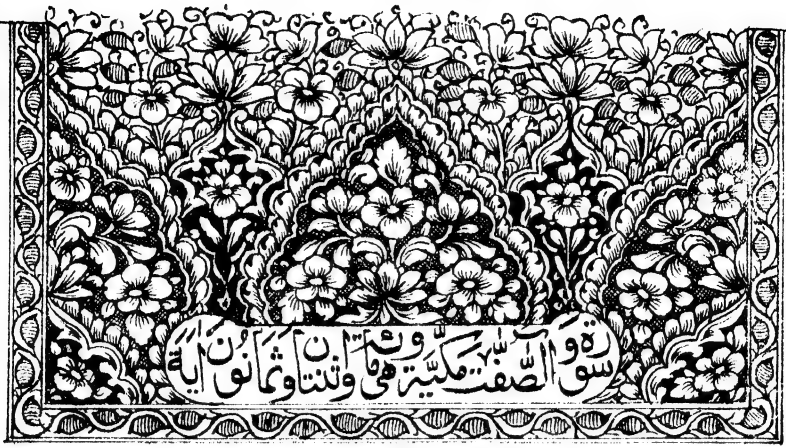 سورة والصّفّت مكيّة وهى مائة واثنتان وثمانون اية